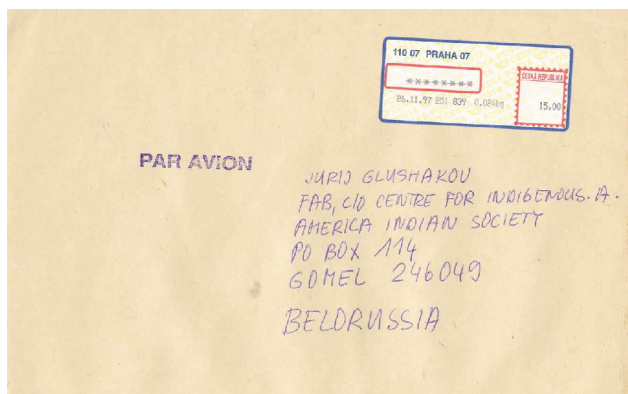 110 07 PRAHA 07
ČESKÁ REPUBLIKA
********
26.11.97 839 0.020kg
15.00
PAR AVION
JURIJ GLUSHAKOV
FAB, C/O CENTRE FOR INDIGENOUS. A.
AMERICA INDIAN SOCIETY
PO BOX 114
GOMEL 246049
BELORUSSIA